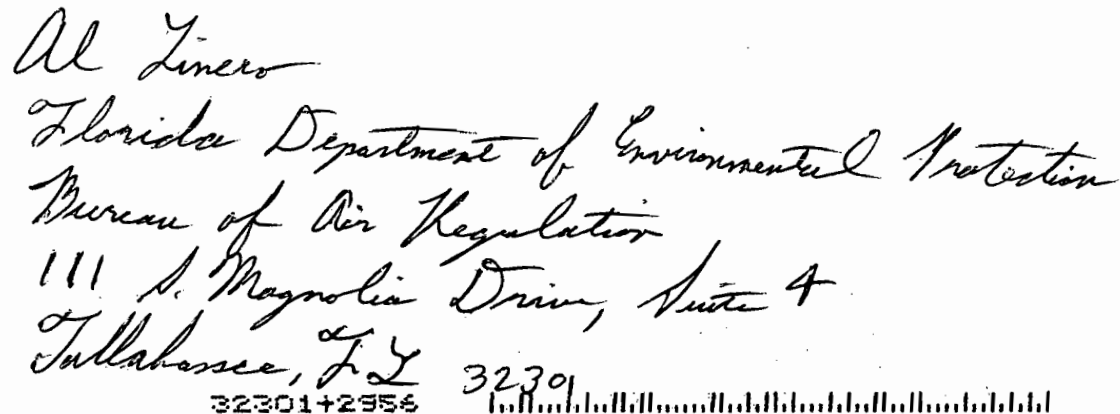 Al Linero
Florida Department of Environmental Protection
Bureau of Air Regulation
111 S. Magnolia Drive, Suite 4
Tallahassee, FL 32301
32301+2956